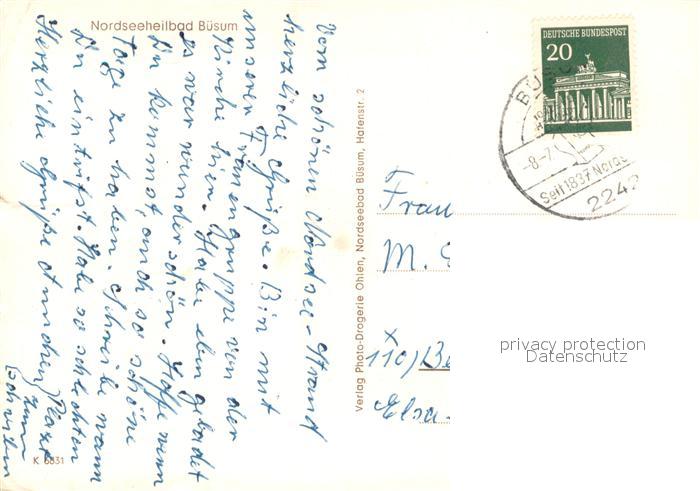 Nordseeheilbad Büsum
Vom schönen Nordsee-Strand
herzliche Grüße. Bin mit
unserer Frauengruppe von der
Kirche hier. Habe eben gebadet
es war wunderschön. Hoffe wenn
Du kommst, auch so schöne
Tage zu haben. Schreibe wann
Du eintrifst. Habe so schlechten
Platz
zum
schreiben
Herzliche Grüße Annchen
K 6831
Verlag Photo-Drogerie Ohlen, Nordseebad Büsum, Hafenstr. 2
DEUTSCHE BUNDESPOST
20
BÜS
-8.-7.
Seit 1837 Nords
2242
Frau
M.
110) Be
Elsa-
privacy protection
Datenschutz